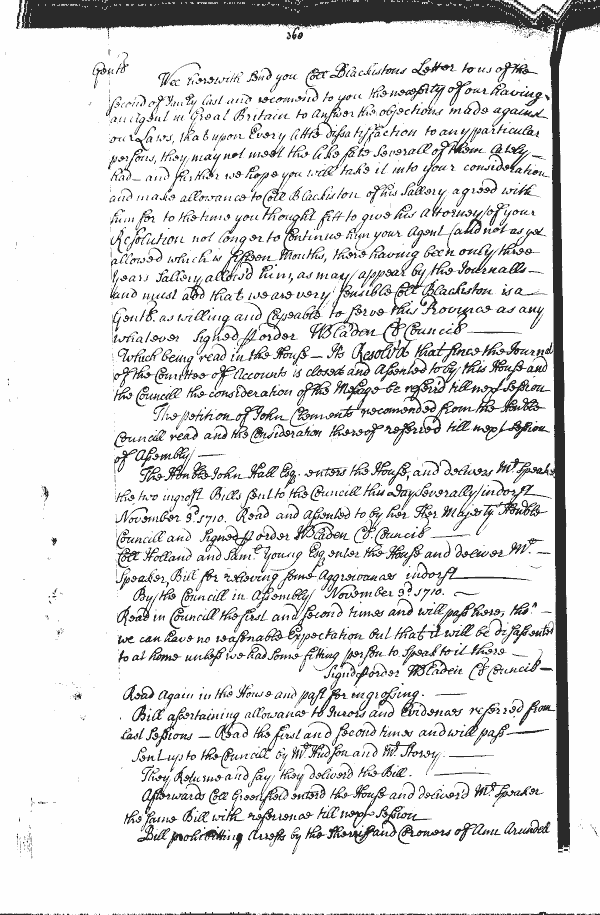 360
Gent̃s
Wee herewith send you Coll Blackistons Letter to us of the
second of last and recomend to you the necessity of our having
an agent in Great Britain to answer the objections made against
our Laws, that upon Every little dissatisfaction to any particular
persons, they may not meet the like fate severall of them lately
had — and further we hope you will take it into your consideration
and make allowance to Coll Blackiston of his Sallery agreed with
him for to the time you thought fitt to give his Attorney of your
Resolution not longer to Continue him your Agent (and not as yet
allowed which is fifteen Months, there having been only three
years Sallery allowed him, as may appear by the Journalls —
and must add that we are very sensible Coll Blackiston is a
Gentℓ. as willing and Capeable to serve this Province as any
whatever Signed ꝑ order WBladen Cℓ Council
Which being read in the House — Its Resolv'd that since the Journal
of the Comittee of Accounts is closed and Assented to by this House and
the Councill the consideration of the Message be referr'd till next Session
The petition of John Clements recomended from the Honble
Councill read and the Consideration thereof referred till next Session
of Assembly —
The Honble John Hall Esq. enters the House, and delivers Mr Speaker
the two ingrost Bills sent to the Councill this Day severally indorst
November 9. 1710. Read and Assented to by her Majestys Honble
Councill and Signed ꝑ order WBladen Cℓ. Council —
Coll Holland and Samℓ. Young Esq enter the House and deliver Mr. —
Speaker, Bill for relieving some Aggreivances indorst —
By the Councill in Assembly November 9. 1710. —
Read in Councill the first and second times and will pass here, tho' —
we can have no reasonable Expectation but that it will be dissassented
to at home unless we had some fitting person to speak to it there —
Signd ꝑ order WBladen Cℓ Council —
Read Again in the House and past for ingrossing. —
Bill assertaining allowance to Jurors and Evidences referred from
last Sessions — Read the first and second times and will pass —
Sent up to the Councill by Mr. Hudson and Mr. Storey. —
They Returne and say, they deliverd the Bill. —
Afterwards Coll Greenfield enterd the House and deliverd Mr Speaker
the same Bill with referrence till next Session
Bill prohibitting Arrests by the Sherriff and Croners of Ann Arundell